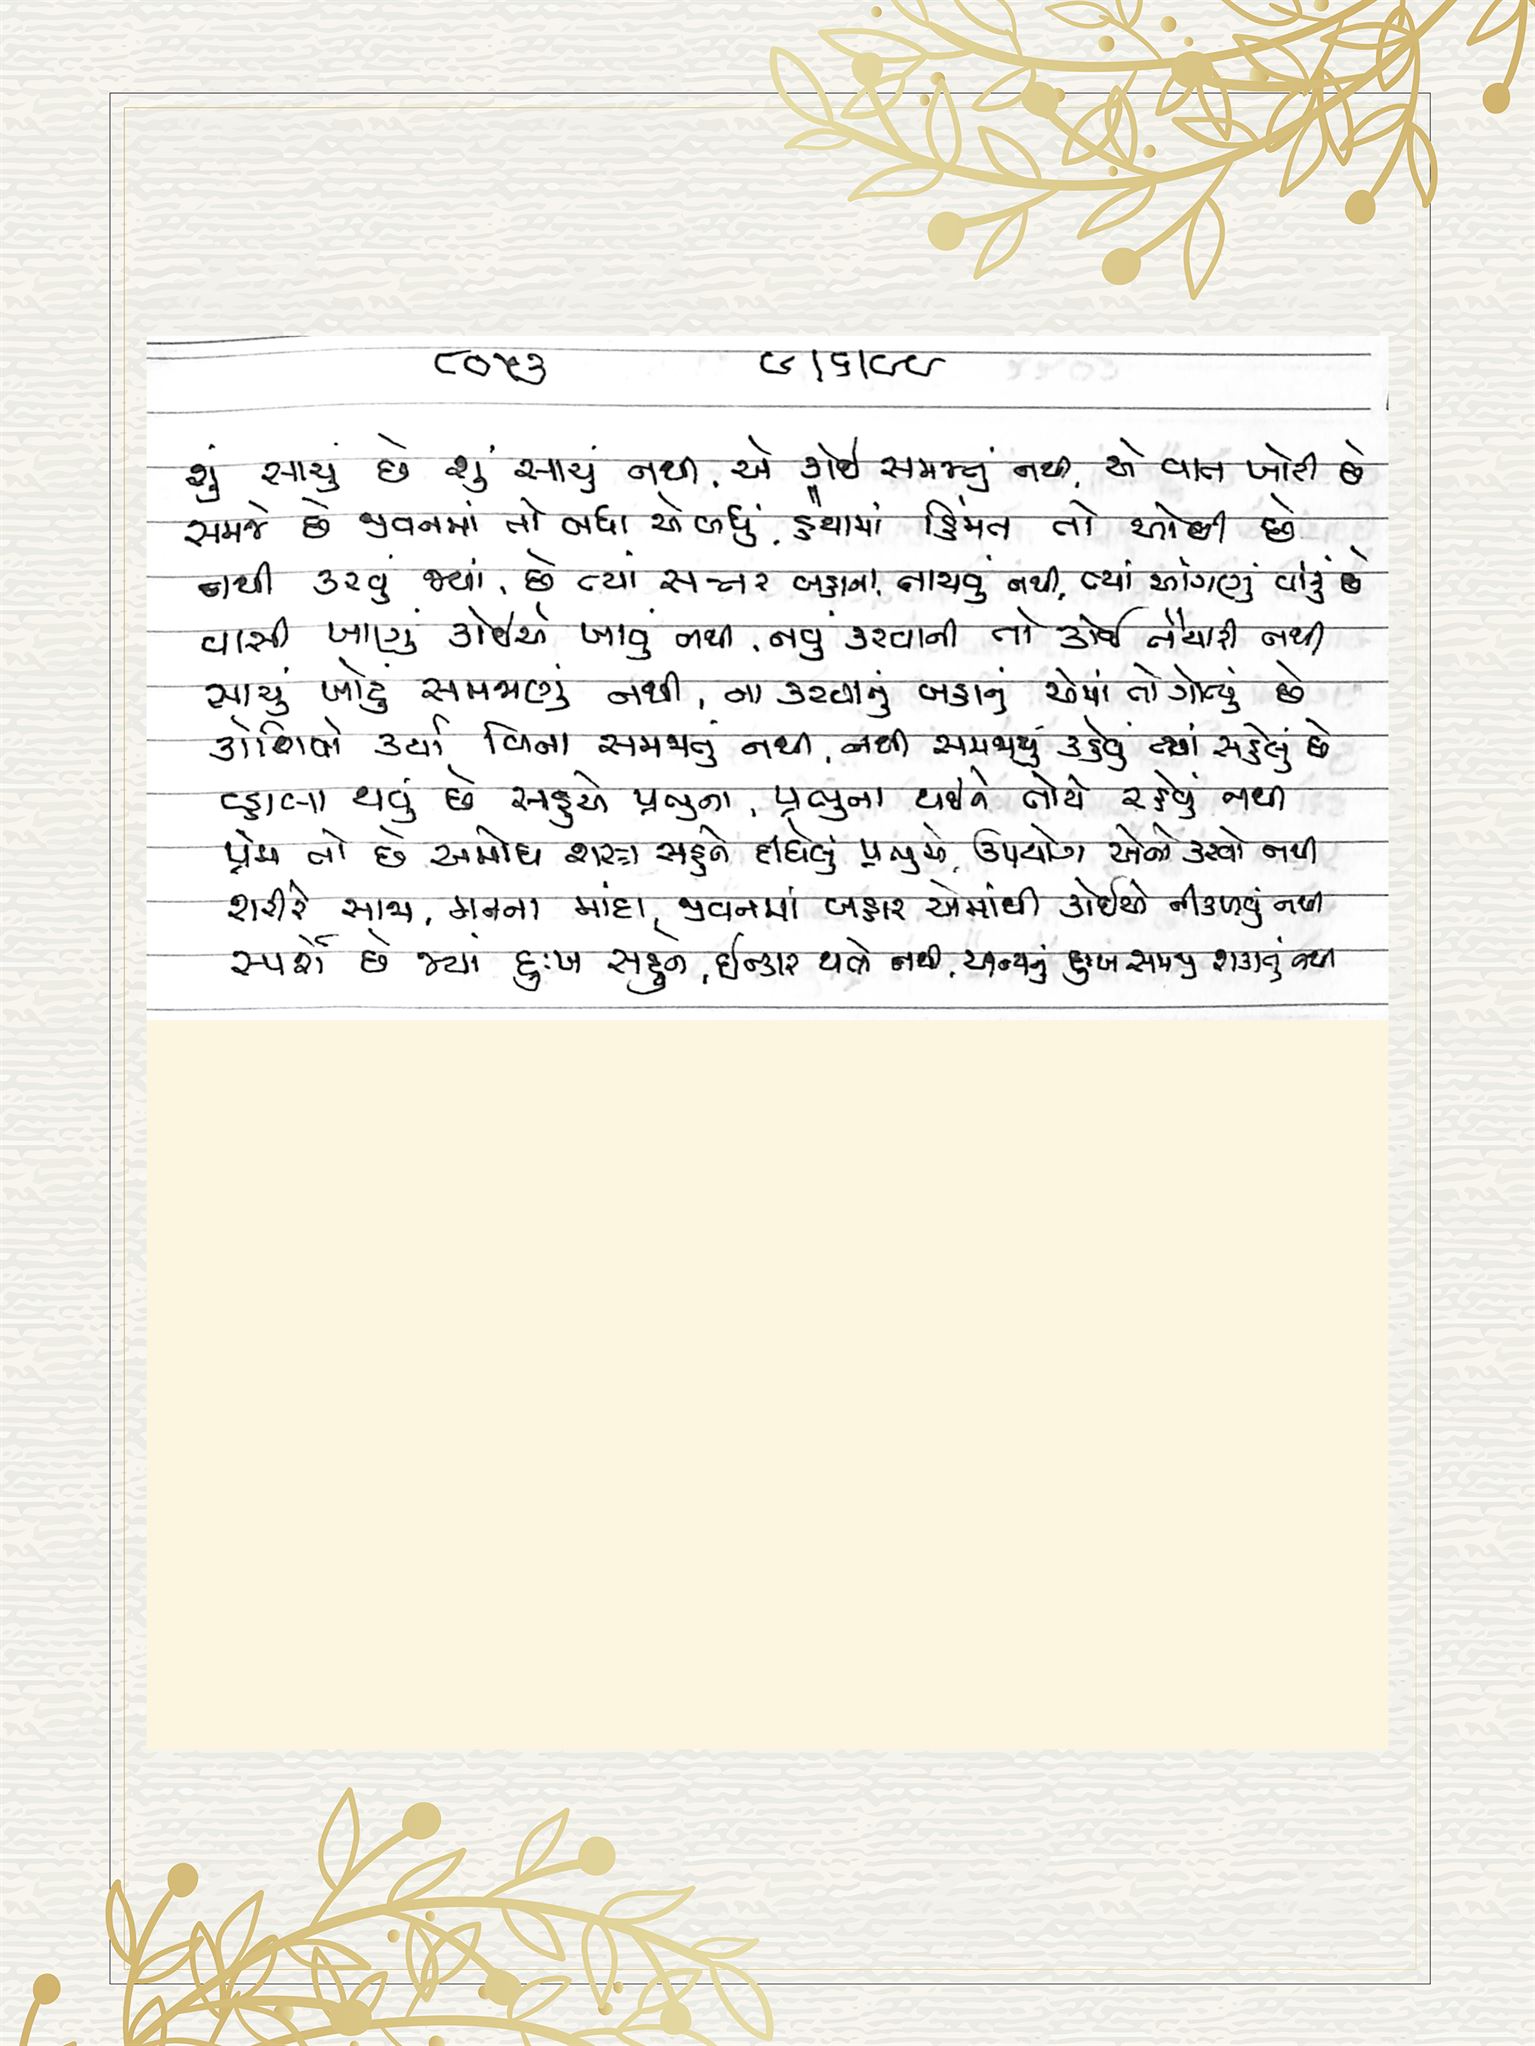 ૮૦૫૩ ૭/૬/૯૯
શું સાચું છે શું સાચું નથી, એ કોઈ સમજતું નથી, એ વાત ખોટી છે
સમજે છે જીવનમાં તો બધા એ બધું, કહ્યામાં કિંમત તો ઓછી છે
નથી કરવું જ્યાં, છે ત્યાં સત્તર બહાના, નાચવું નથી, ત્યાં આંગણું વાંકું છે
વાસી ખાણું કોઈએ ખાવું નથી, નવું કરવાની તો કોઈ તૈયારી નથી
સાચું ખોટું સમજાણું નથી, ના કરવાનું બહાનું એમાં તો ગોત્યું છે
કોશિશે કર્યા વિના સમજાતું નથી, નથી સમજાયું કહેવું ત્યાં સહેલું છે
વ્હાલા થવું છે સહુએ પ્રભુના, પ્રભુના થઈને તોયે રહેવું નથી
પ્રેમ તો છે અમોઘ શસ્ત્ર સહુને દીધેલું પ્રભુએ, ઉપયોગ એનો કરવો નથી
શરીરે સાજા, મનના માંદા, જીવનમાં બહાર એમાંથી કોઈએ નીકળવું નથી
સ્પર્શે છે જ્યાં દુઃખ સહુને, ઈન્કાર થાતો નથી, અન્યનું દુઃખ સમજી શકાતું નથી